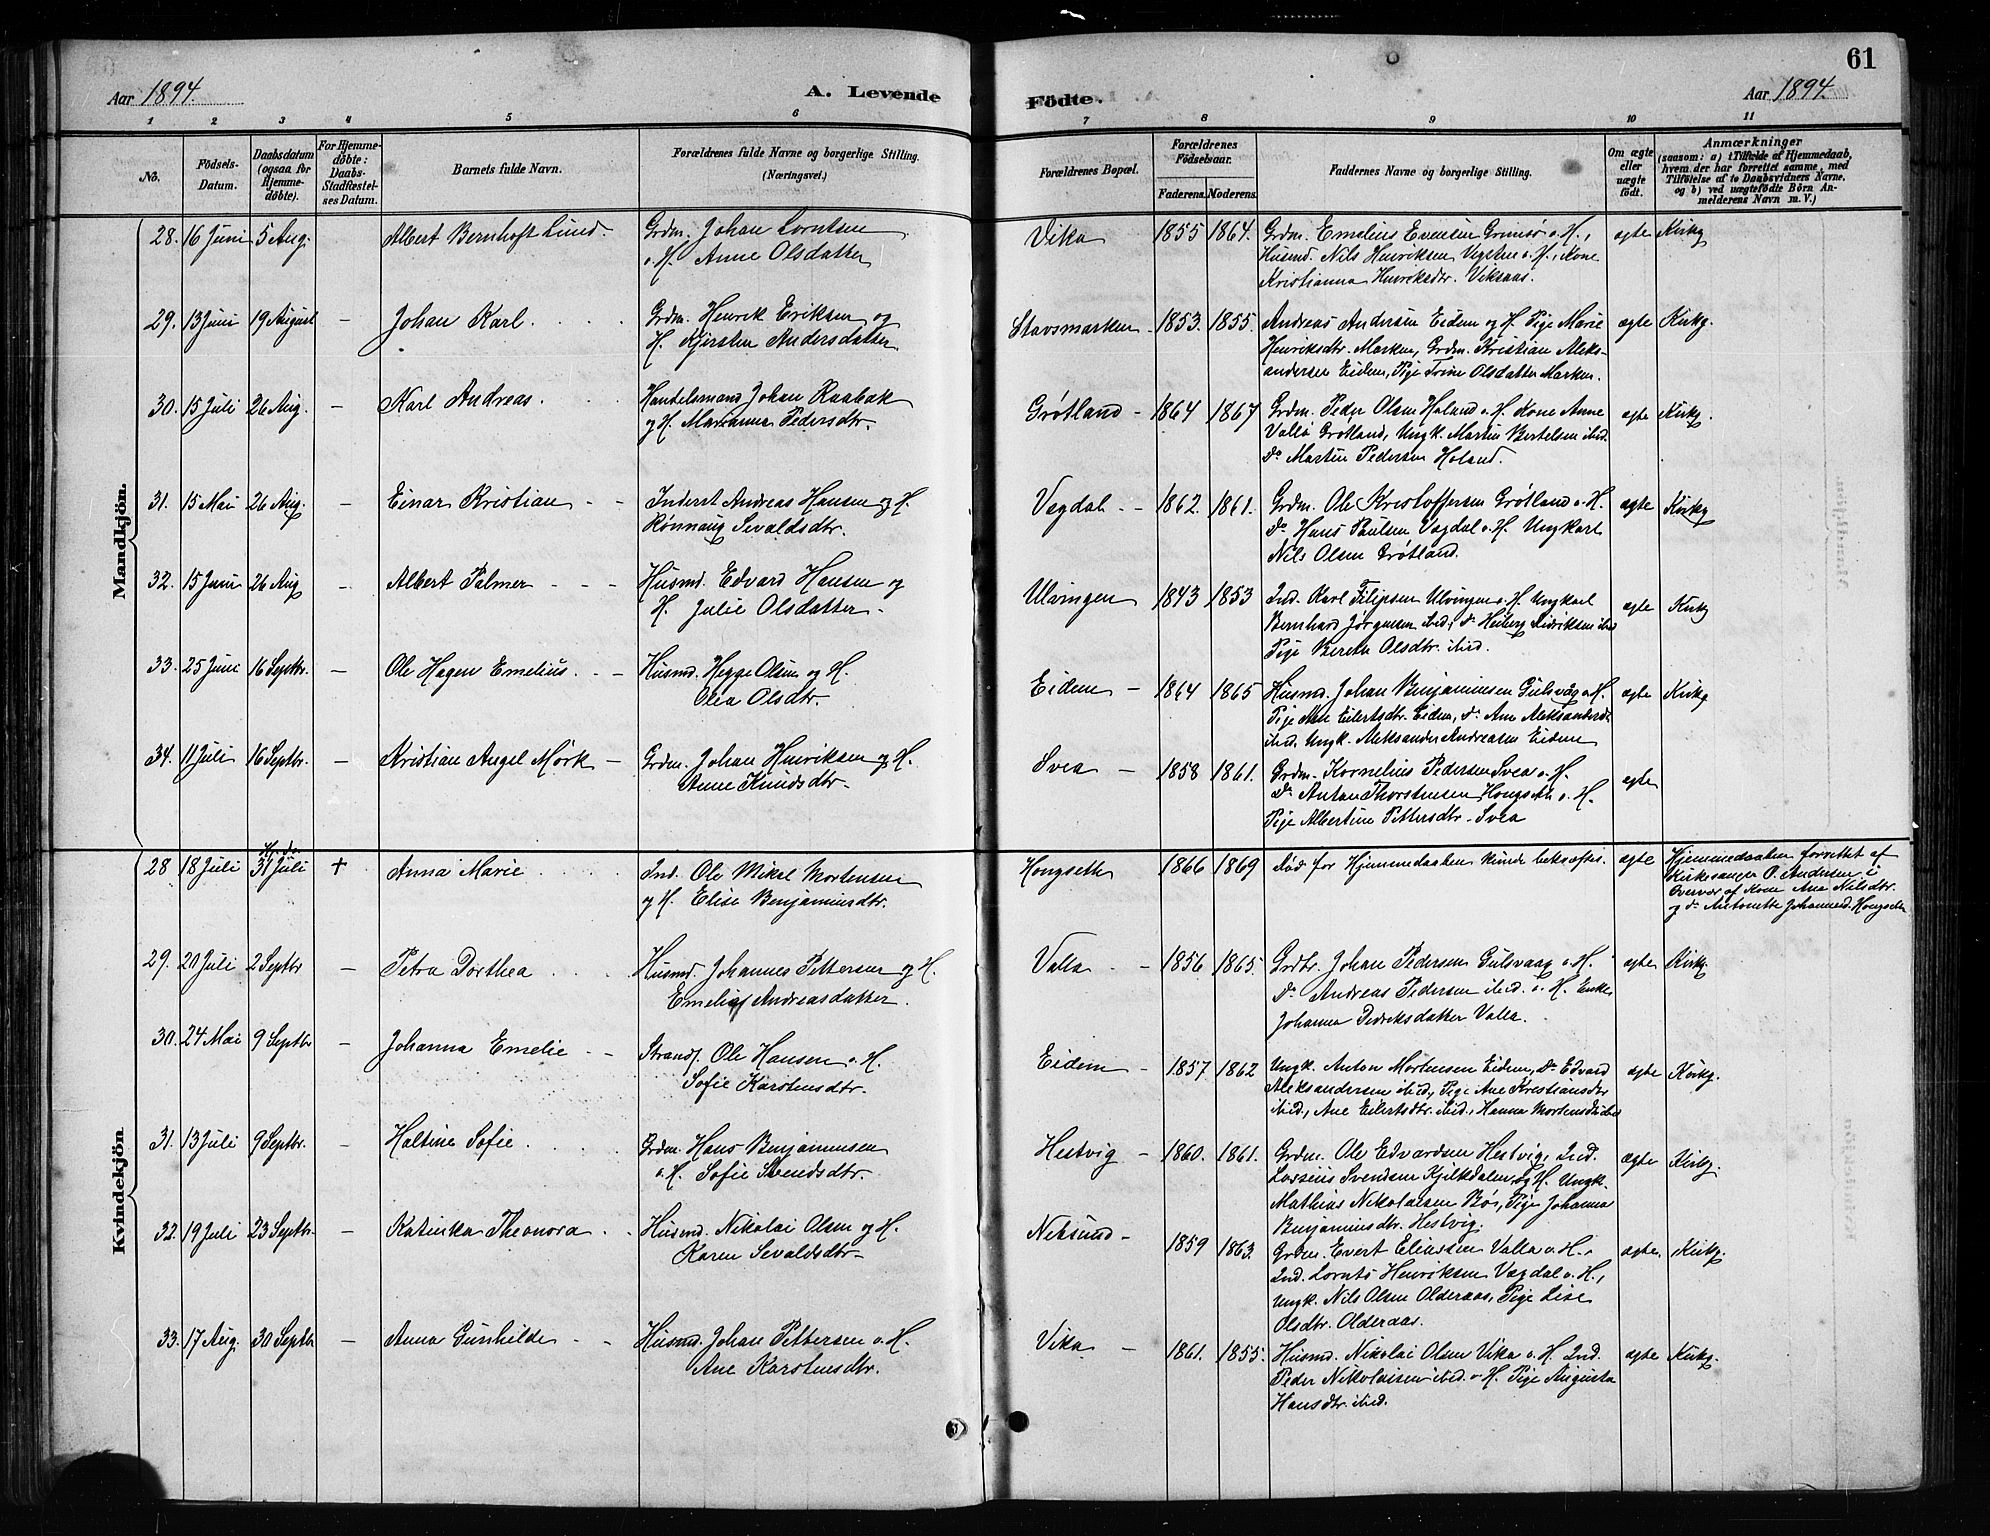 61
Aar 1894.
A. Levende
Födte.
Aar 1894.
1 2 3 4 5 6 7 8 9 10 11
No.
Födsels-
Datum.
Daabsdatum
(ogsaa for
Hjemme-
döbte).
For Hjemme-
döbte:
Daabs-
Stadfæstel-
ses Datum.
Barnets fulde Navn.
Forældrenes fulde Navne og borgerlige Stilling.
(Næringsvei.)
Forældrenes Bopæl.
Forældrenes
Födselsaar.
Faderens. Moderens.
Faddernes Navne og borgerlige Stilling.
Om ægte
eller
uægte
födt.
Anmærkninger
(saasom: a) i Tilfælde af Hjemmedaab,
hvem der har forrettet samme, med
Tilföielse af to Daabsvidners Navne,
og b) ved uægtefödte Börn An-
melderens Navn m. V.)
Mandkjön.
28. 16 Juni 5 Aug. – Albert Bernhoft Lund. Grdm. Johan Lorntsen
o. H. Anne Olsdatter
Vika 1855 1864. Grdm. Emelius Evensen Grimsø o. H.,
Husmd. Nils Henriksen Vegsten o. H., Kone
Kristianna Henriksdtr. Viksaas.
ægte Kirkg
29. 13 Juni 19 August – Johan Karl. Grdm. Henrik Eriksen og
H. Kjersten Andersdatter
Stavsmarken – 1853. 1855. Andreas Andersen Eidem og H. Pige Marie
Henriksdtr. Marken, Grdm. Kristian Aleks-
andersen Eidem, Pige Trine Olsdatter Marken.
ægte Kirkg.
30. 15 Juli 26 Aug. – Karl Andreas. Handelsmand Johan Raabak
og H. Marianna Pedersdtr.
Grøtland – 1864 1867 Grdm. Peder Olsen Holand o. H. Kone Anne
Valla Grøtland, Ungk. Martin Bertelsen ibid.
Do Martin Pedersen Holand.
ægte Kirkg.
31. 15 Mai 26 Aug. – Einar Kristian – Inderst Andreas Hansen og H.
Rønnaug Sevaldsdtr.
Vegdal – 1862. 1861. Grdm. Ole Kristoffersen Grøtland o. H.
Do Hans Paulsen Vagdal o. H. Ungkarl
Nils Olsen Grøtland.
ægte Kirkg
32. 15 Juni 26 Aug – Albert Palmer – Husmd. Edvard Hansen og
H. Julie Olsdatter –
Ulvingen 1843 1853 Ind. Karl Filipsen Ulvingen o. H. Ungkarl
Bernhard Jørgensen ibid, Do Heiberg Didriksen ibid
Pige Berete Olsdtr. ibid.
ægte Kirkg
33. 25 Juni 16 Septbr. – Ole Hagen Emelius. – Husmd. Hegge Olsen og H.
Olea Olsdtr.
Eidem – 1864 1865 Husmd. Johan Benjaminsen Gulsvåg o. H.
Pige Ane Eilertsdtr. Eidem, Do Ane Aleksandersd.
ibid. Ungk. Aleksander Andreasen Eidem
ægte Kirkg
34. 11 Juli 16 Septbr. – Kristian Angel Mørk – Grdm. Johan Henriksen og H.
Anne Knudsdtr.
Svea – 1858 1861. Grdm. Kornelius Pedersen Svea o. H.
Do Antan Thorstensen Hongseth o. H.
Pige Albertine Pettersdtr. Svea
ægte
Kvindekjön
28 18 Juli Hj. d. 31 Juli + Anna Marie Ind. Ole Mikal Mortensen
og H. Elise Benjaminsdtr.
Hongseth 1866 1869 Død før Hjemmedaaben kunde bekræftes. ægte
Hjemmedaaben forrettet af
Kirksanger O. Andersen i
Overvær af Kone Ane Nilsdtr.
og Do Antonette Johannesd. Hongseth
29. 20 Juli 2 Septbr – Petra Dorthea Husmd. Johannes Pettersen og H.
Emelie Andreasdatter.
Valla – 1856 1865. Grdbr. Johan Pedersen Gulsvaag o. H.
Do Andreas Pedersen ibid. o. H. Enke
Johanna Didriksdatter Valla.
ægte Kirkg.
30. 24 Mai 9 Septbr – Johanna Emelie – Strands. Ole Hansen o. H.
Sofie Karstensdtr.
Eidem – 1857. 1862 Ungk. Anton Mortensen Eidem, Do Edvard
Aleksandersen ibid, Pige Ane Kristiansdtr
ibid, Ane Eilertsdtr. ibid. Hanna Mortensdtr ibid
ægte Kirkg.
31. 13 Juli 9 Septbr. – Haltine Sofie. Grdm. Hans Benjaminsen
o. H. Sofie Svendsdtr.
Hestvig – 1860. 1861. Grdm. Ole Edvardsen Hestvig, Ind.
Lasseius Svendsen Kjilkdalen, og H. Ungk.
Mathias Nikolaisen Bøe, Pige Johanna
Benjaminsdtr. Hestvig.
ægte Kirkg.
32. 19 Juli 23 Septbr. – Katinka Theonora. Husmd. Nikolai Olsen og H.
Karen Sevaldsdtr –
Nebsund – 1859 1863. Grdm. Evert Eliassen Valla o. H.,
Ind. Lornts Henriksen Vægdal o. H.,
Ungk. Nils Olsen Olderaas, Pige Lise
Olsdtr. Olderaas.
ægte. Kirkg.
33. 17 Aug. 30 Septbr – Anna Gunhilde – Husmd. Johan Pettersen o. H.
Ane Karstensdtr.
Vika – 1861. 1855. Husmd. Nikolai Olsen Vika o. H. Ind.
Peder Nikolaisen ibid. o. H. Pige Augusta
Hansdtr. ibid.
ægte Kirkg.